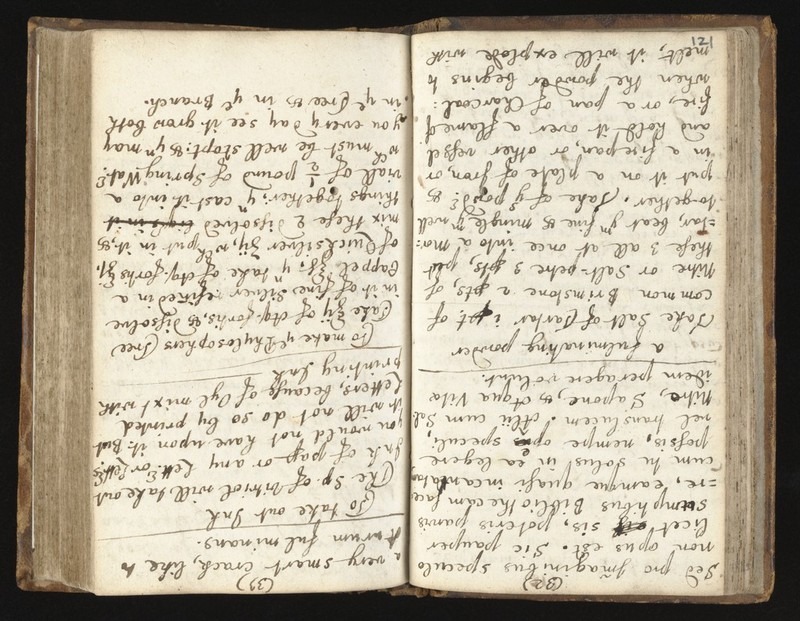 (32)
Sed pro Imaginibus speculo
non opus est. Sic pauper
licet sis, poteris parvis
sumptibus Bibliothecam face
=re, eamque quasi incantatam,
cum tu solus in ea legere
possis, nempe ope speculi,
vel translucem. Alii cum Sal
Nitro, Sapone, & Aqua Vitæ
idem peragere volunt.
a fulminating powder
Take Salt of Tartar 1 pt. of
common Brimstone 2 pts, of
Nitre or Salt-petre 3 pts, put
these 3 all at once into a mor:
=tar, beat ym fine & mingle ym well
together. Take of ys powdr. &
put on it on a plate of Iron, or
in a firepan, or other vessel
and hold it over a flame of
fire, or a pan of Charcoal:
when the powder begins to
melt, it will explode with
121
(33)
a very smart crack, like to
Aurum fulminans.
To take out Ink
The Sp. of Vitriol will take out
Ink of paper or any Lettr. or Letters
you would not have upon it: But
it will not do so by printed
Letters, because of Oyl mixt with
printing Ink.
To make ye Phylosophers Tree
Take ℥ij of Aq. fortis, & dissolve
in it of fine silver refined in a
Cappel ℥ß, yn take of Aq. fortis ℥j,
of Quicksilver ʒij, wch put in it, &
mix these 2 dissolved
things together, yn cast it into a
viall of 1/2 pound of Spring Watr.
wch must be well stopt: & yn may
you every day see it grow both
in ye Tree & in ye Branch.